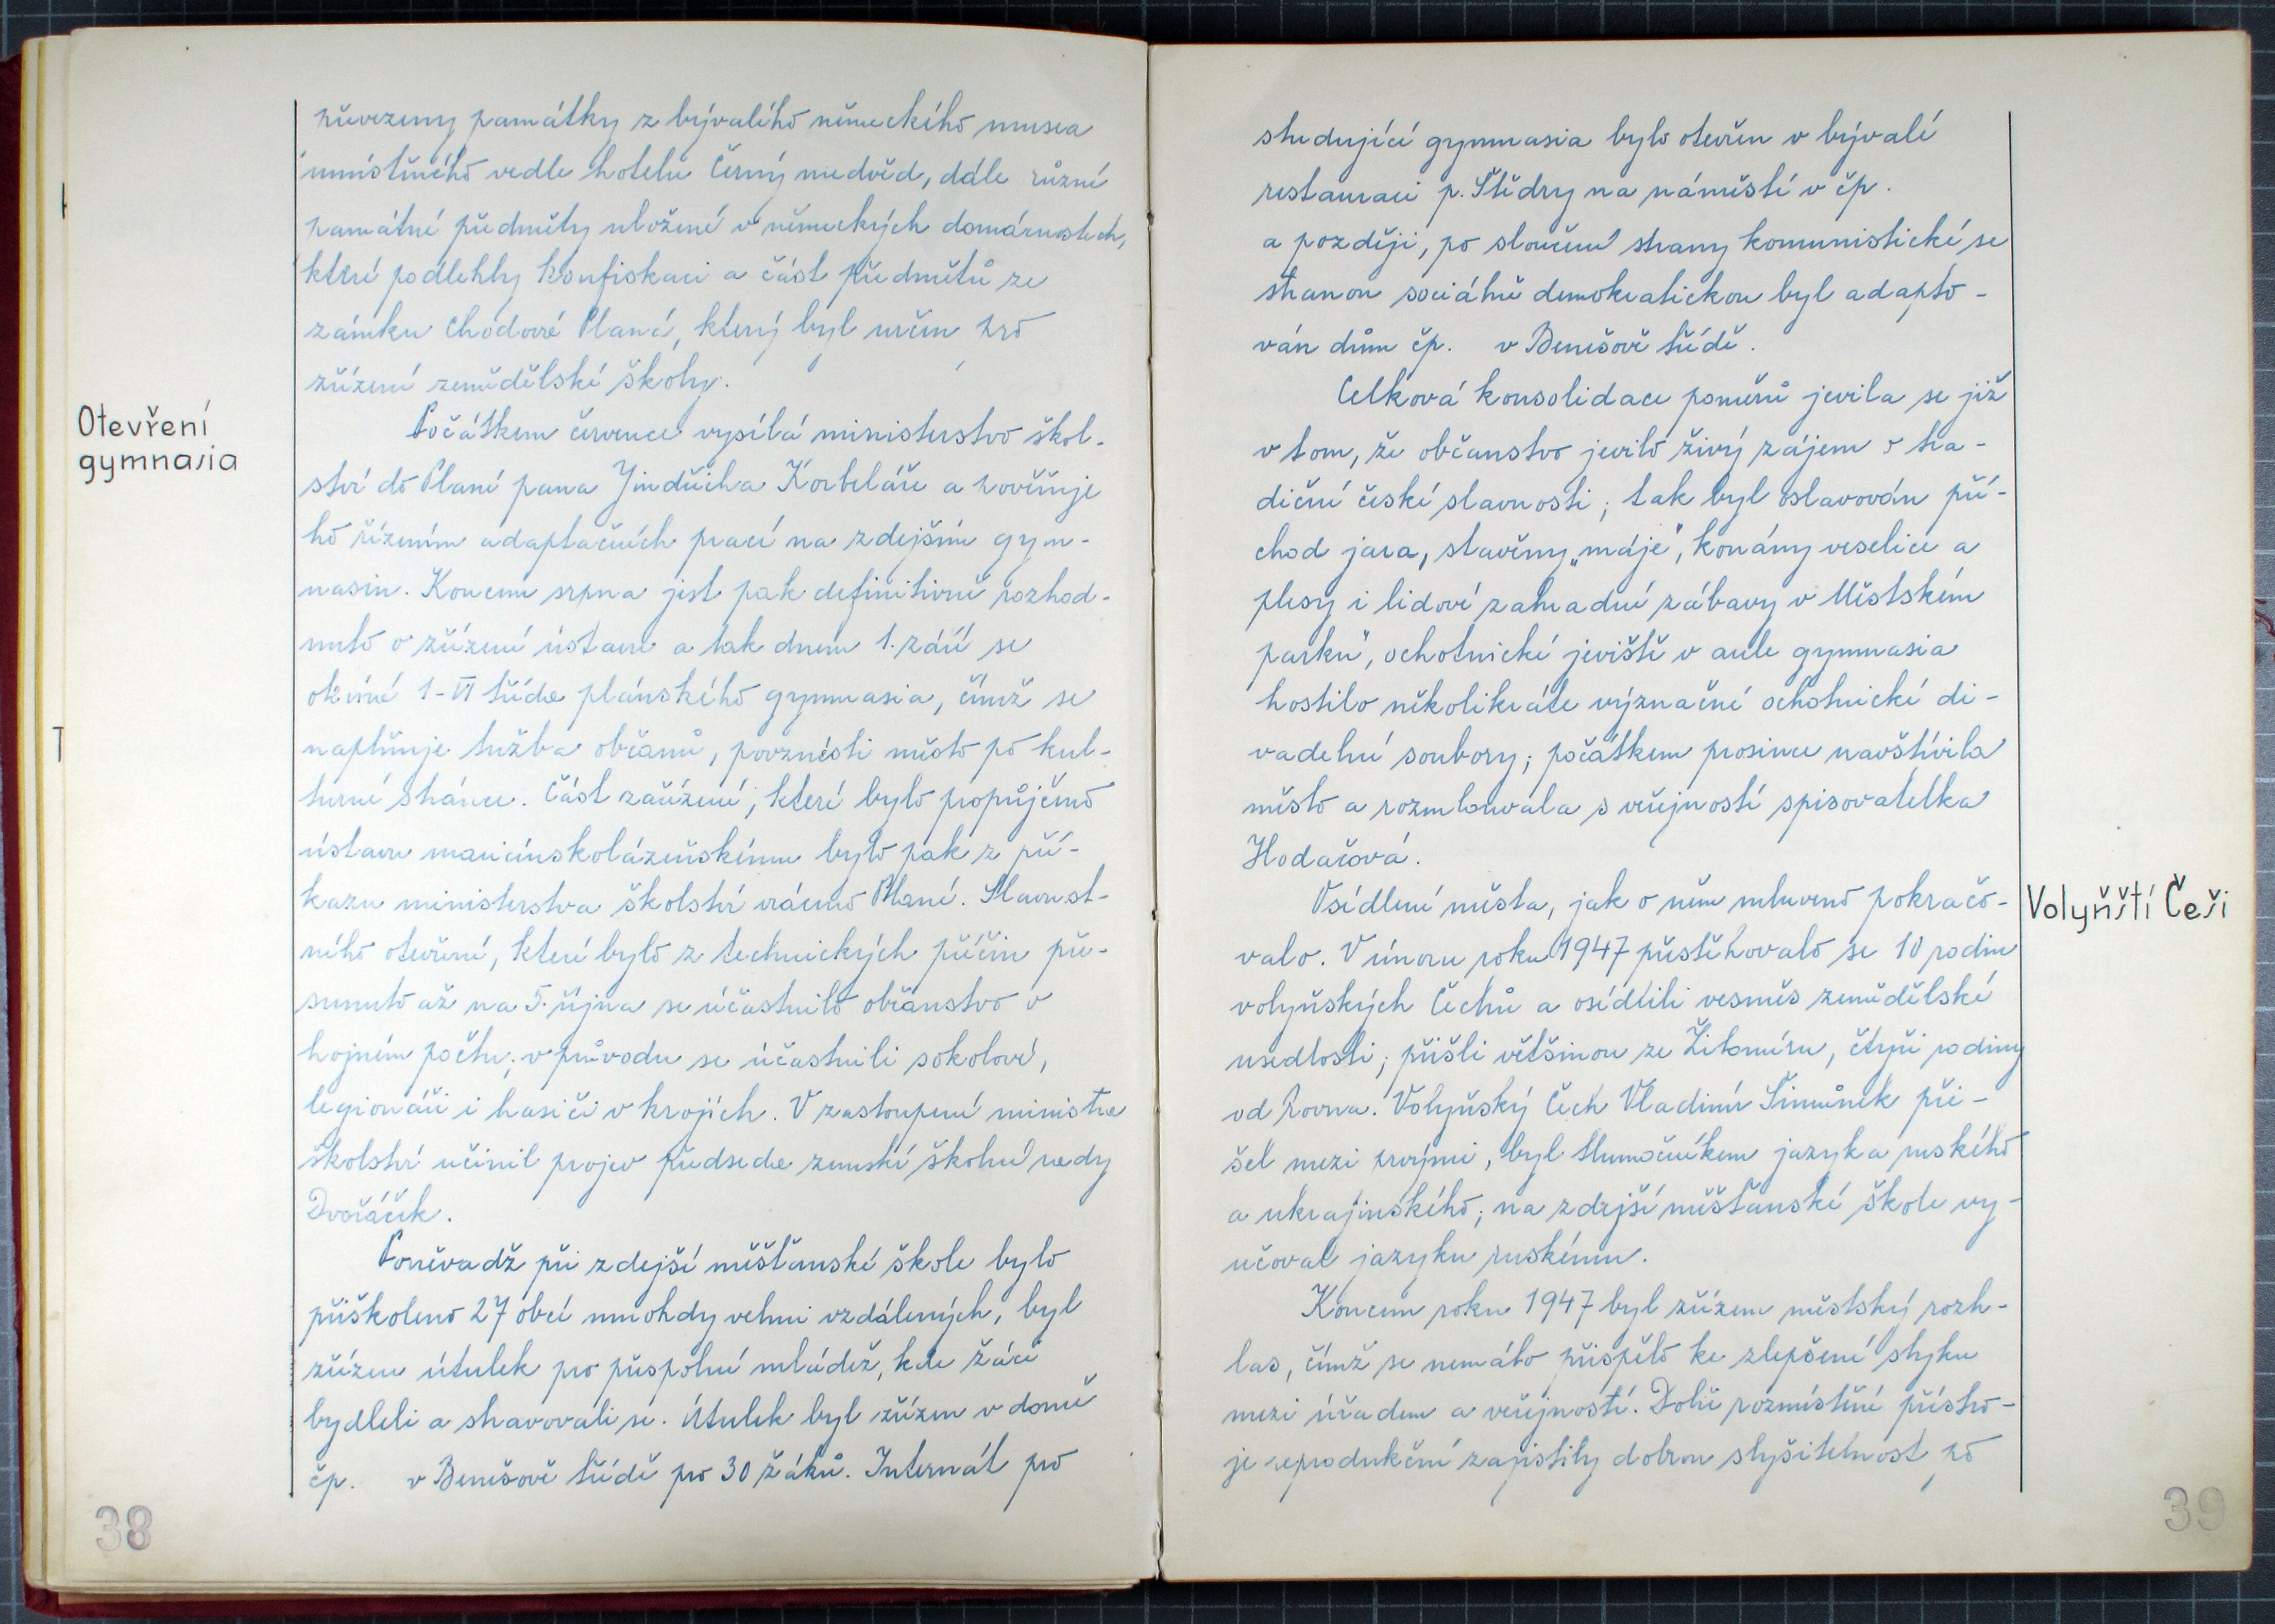 převezeny památky z bývalého německého musea
umístěného vedle hotelu Černý medvěd, dále různé
památné předměty uložené v německých domácnostech,
které podlehly konfiskaci a část předmětů ze
zámku Chodové Planá, který byl určen pro
zřízení zemědělské školy.
Otevření
gymnasia
Počátkem července vysílá ministerstvo škol-
ství do Plané pana Jindřicha Korbeláře a pověřuje
ho řízením adaptačních prací na zdejším gym-
nasiu. Koncem srpna jest pak definitivně rozhod-
nuto o zřízení ústavu a tak dnem 1. září se
otevírá 1-VI třída plánského gymnasia, čímž se
naplňuje tužba občanů, povznésti město po kul-
turní stránce. Část zařízení, které bylo propůjčeno
ústavu mariánskolázeňskému bylo pak z pří-
kazu ministerstva školství vráceno Plané. Slavnost-
ního otevření, které bylo z technických příčin pře-
sunuto až na 5. října se účastnilo občanstvo v
hojném počtu; v průvodu se účastnili sokolové,
legionáři i hasiči v krojích. V zastoupení ministra
školství učinil projev předseda zemské školní rady
Dvořáček.
Poněvadž při zdejší měšťanské škole bylo
přiškoleno 27 obcí mnohdy velmi vzdálených, byl
zřízen útulek pro přespolní mládež, kde žáci
bydleli a stravovali se. Útulek byl zřízen v domě
čp. v Benešově třídě pro 30 žáků. Internát pro
38
studující gymnasia bylo otevřen v bývalé
restauraci p. Štědry na náměstí v čp.
a později, po sloučení strany komunistické se
stranou sociálně demokratickou byl adapto-
ván dům čp. v Benešově třídě.
Celková konsolidace poměrů jevila se již
v tom, že občanstvo jevilo živý zájem o tra-
diční české slavnosti; tak byl oslavován pří-
chod jara, stavěny „máje", konány veselice a
plesy i lidové zahradní zábavy v Městském
parku", ochotnické jeviště v aule gymnasia
hostilo několikráte význačné ochotnické di-
vadelní soubory; počátkem prosince navštívila
město a rozmlouvala s veřejností spisovatelka
Hodačová.
Volyňští Češi
Osídlení města, jak o něm mluveno pokračo-
valo. V únoru roku 1947 přistěhovalo se 10 rodin
volyňských Čechů a osídlili vesměs zemědělské
usedlosti; přišli většinou ze Žitomíru, čtyři rodiny
od Rovna. Volyňský Čech Vladimír Šimůnek při-
šel mezi prvými, byl tlumočníkem jazyka ruského
a ukrajinského; na zdejší měšťanské škole vy-
učoval jazyku ruskému.
Koncem roku 1947 byl zřízen městský rozh-
las, čímž se nemálo přispělo ke zlepšení styku
mezi úřadem a veřejností. Dobře rozmístěné přístro-
je reprodukční zajistily dobrou slyšitelnost po
39